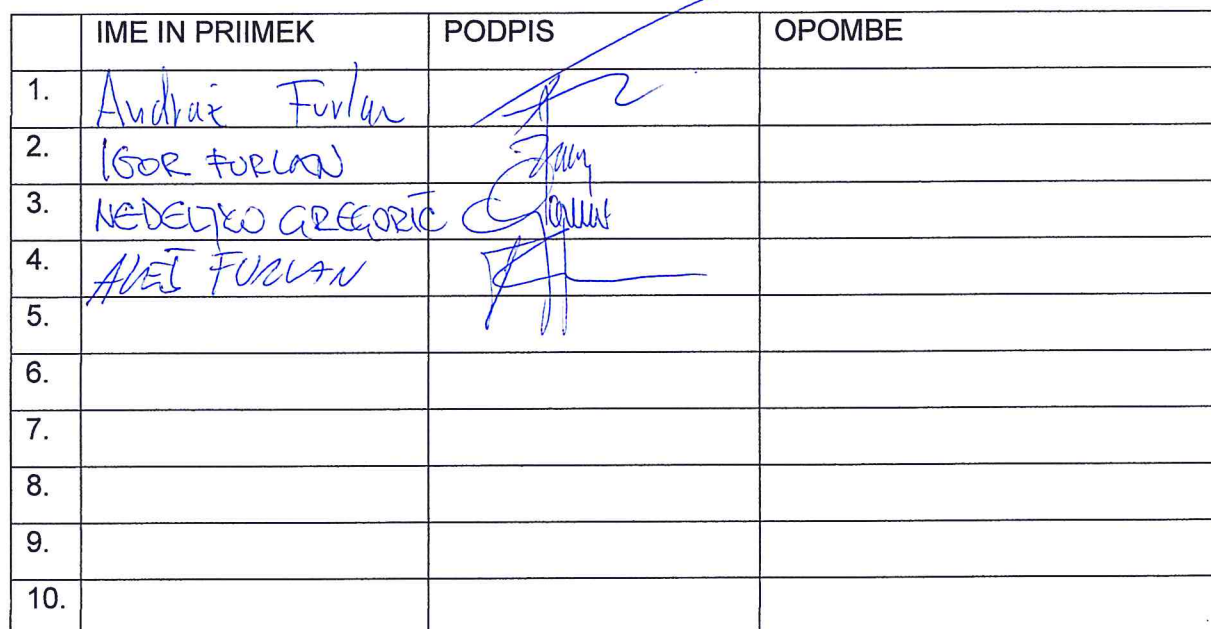 IME IN PRIIMEK PODPIS OPOMBE
1. Andraž Furlan
2. IGOR FURLAN
3. NEDELJKO GREGORIČ
4. ALEŠ FURLAN
5.
6.
7.
8.
9.
10.